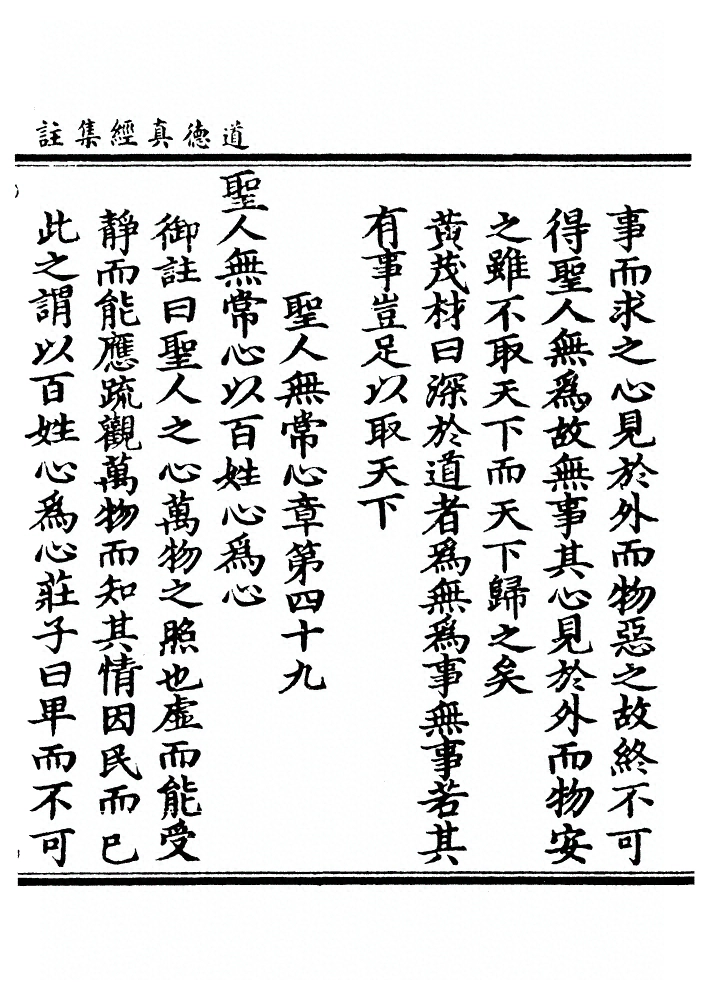 道德真經集註
事而求之心見於外而物惡之故終不可
得聖人無爲故無事其心見於外而物安
之雖不取天下而天下歸之矣
黃茂材曰深於道者爲無爲事無事若其
有事豈足以取天下
聖人無常心章第四十九
聖人無常心以百姓心爲心
御註曰聖人之心萬物之照也虛而能受
靜而能應疏觀萬物而知其情因民而已
此之謂以百姓心爲心莊子曰卑而不可